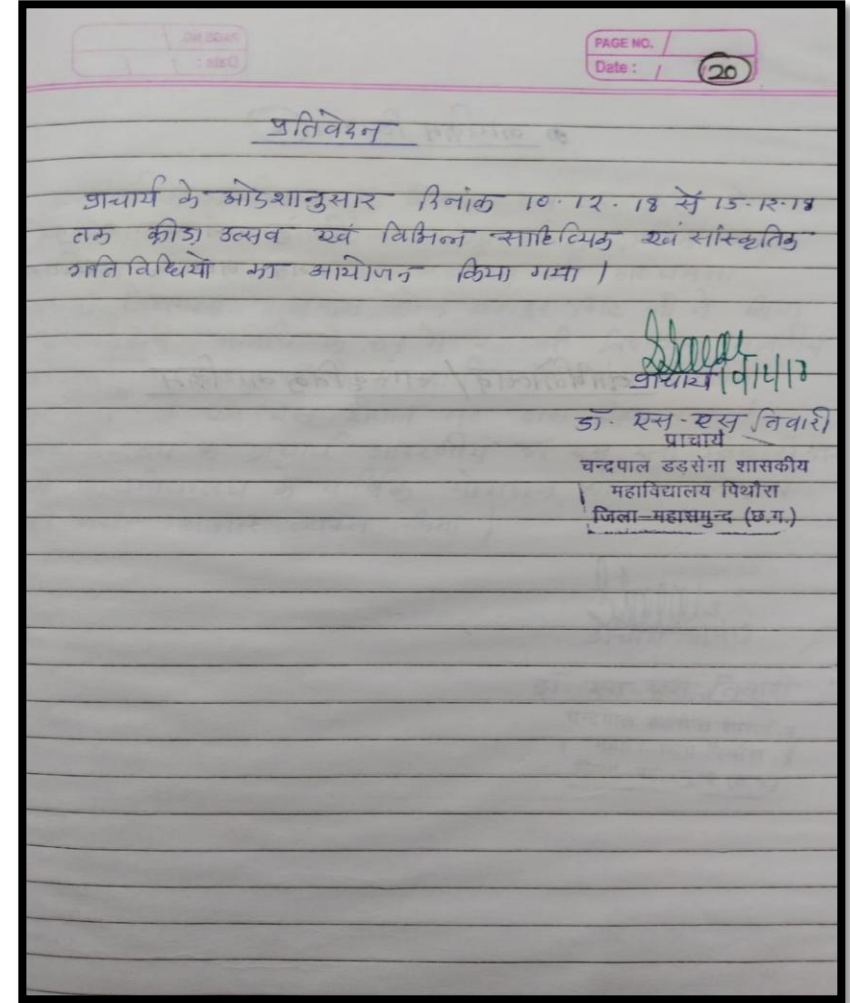 PAGE NO.
Date :
20
प्रतिवेदन
प्राचार्य के आदेशानुसार दिनांक 10.12.18 से 15.12.18
तक क्रीड़ा उत्सव एवं विभिन्न साहित्यिक एवं सांस्कृतिक
गतिविधियों का आयोजन किया गया।
प्राचार्य
डॉ. एस.एस तिवारी
प्राचार्य
चन्द्रपाल डड़सेना शासकीय
महाविद्यालय पिथौरा
जिला-महासमुन्द (छ.ग.)